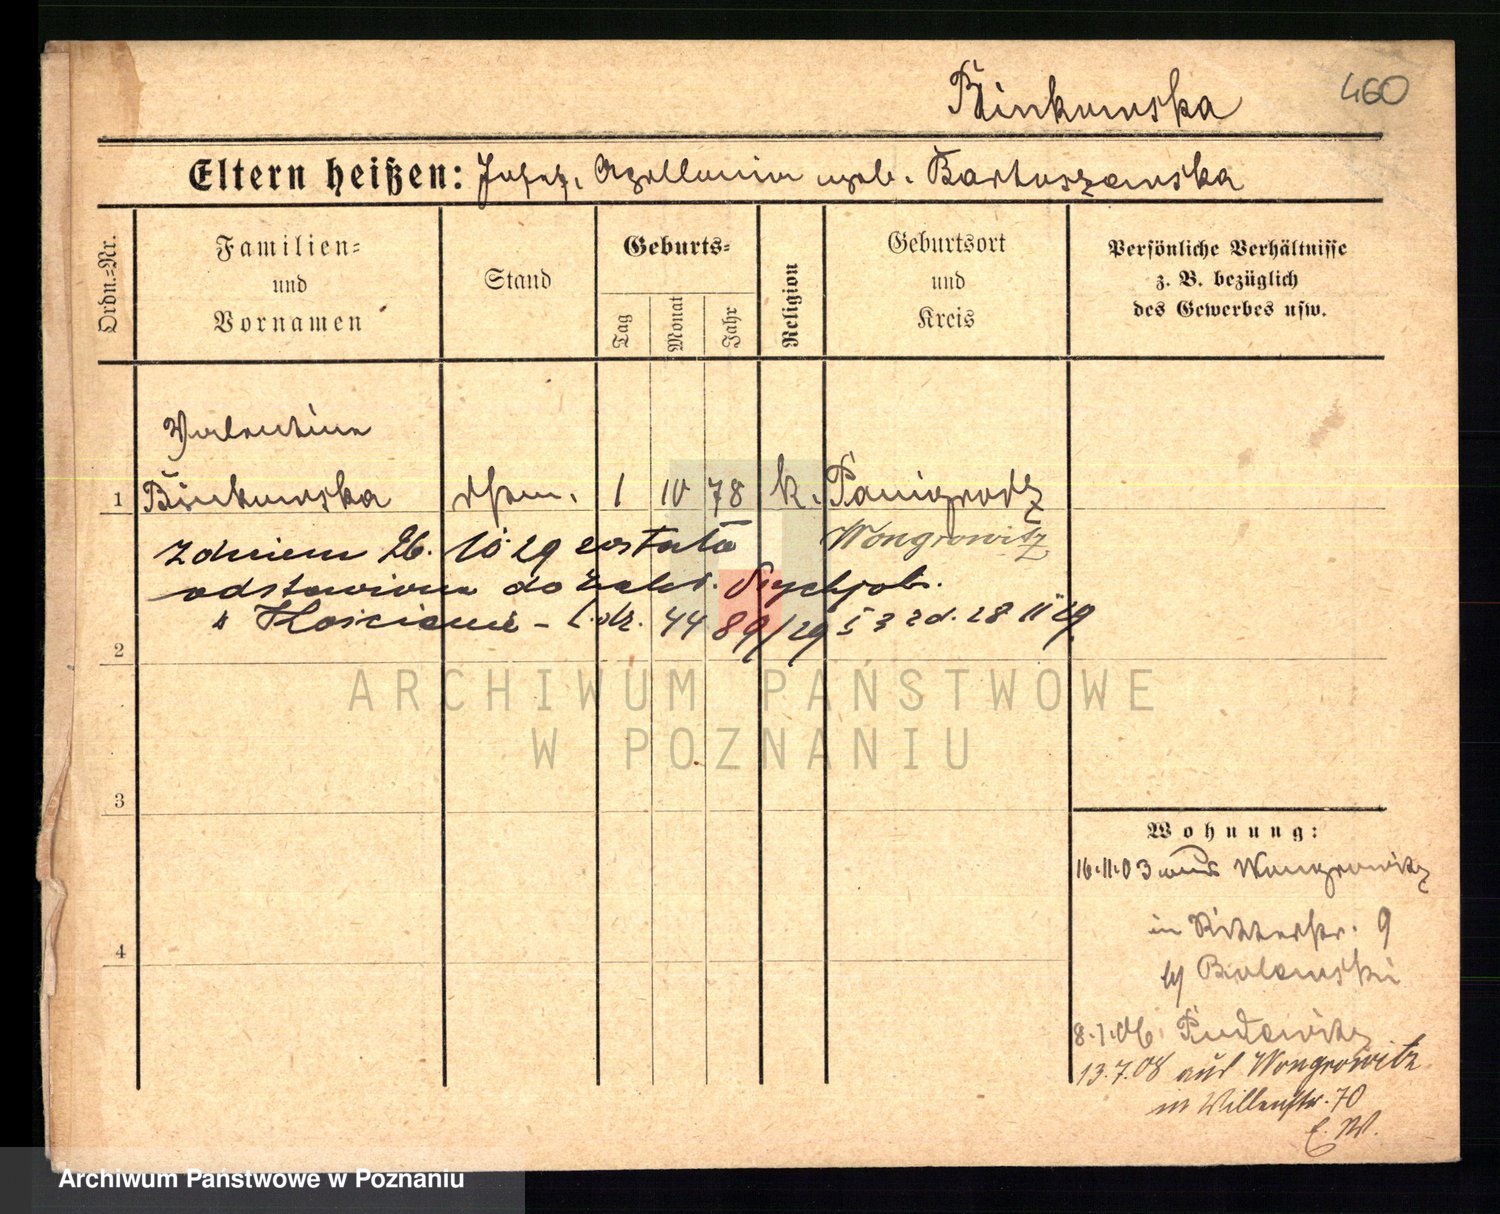 460
Binkowska
Eltern heißen: Josef, Apollonia geb. Bartuszewska
Ordn.-Nr.
Familien-
und
Vornamen
Stand
Geburts-
Tag
Monat
Jahr
Religion
Geburtsort
und
Kreis
Persönliche Verhältnisse
z. B. bezüglich
des Gewerbes usw.
Valentina
1 Binkowska 1 10 78 k. Panigrodz
Wongrowitz
z dniem 26. 10 29 została
odstawiona do zakł. Psychjatr.
w Kościanie - L. dz. 4489/29 z d. 28 11 29
2
3
4
Wohnung:
16.11.03 aus Wongrowitz
in Ritterstr. 9
8.1.06 Pudewitz
13.7.08 aus Wongrowitz
in Willenstr. 70
E. W.
ARCHIWUM PAŃSTWOWE
W POZNANIU
Archiwum Państwowe w Poznaniu